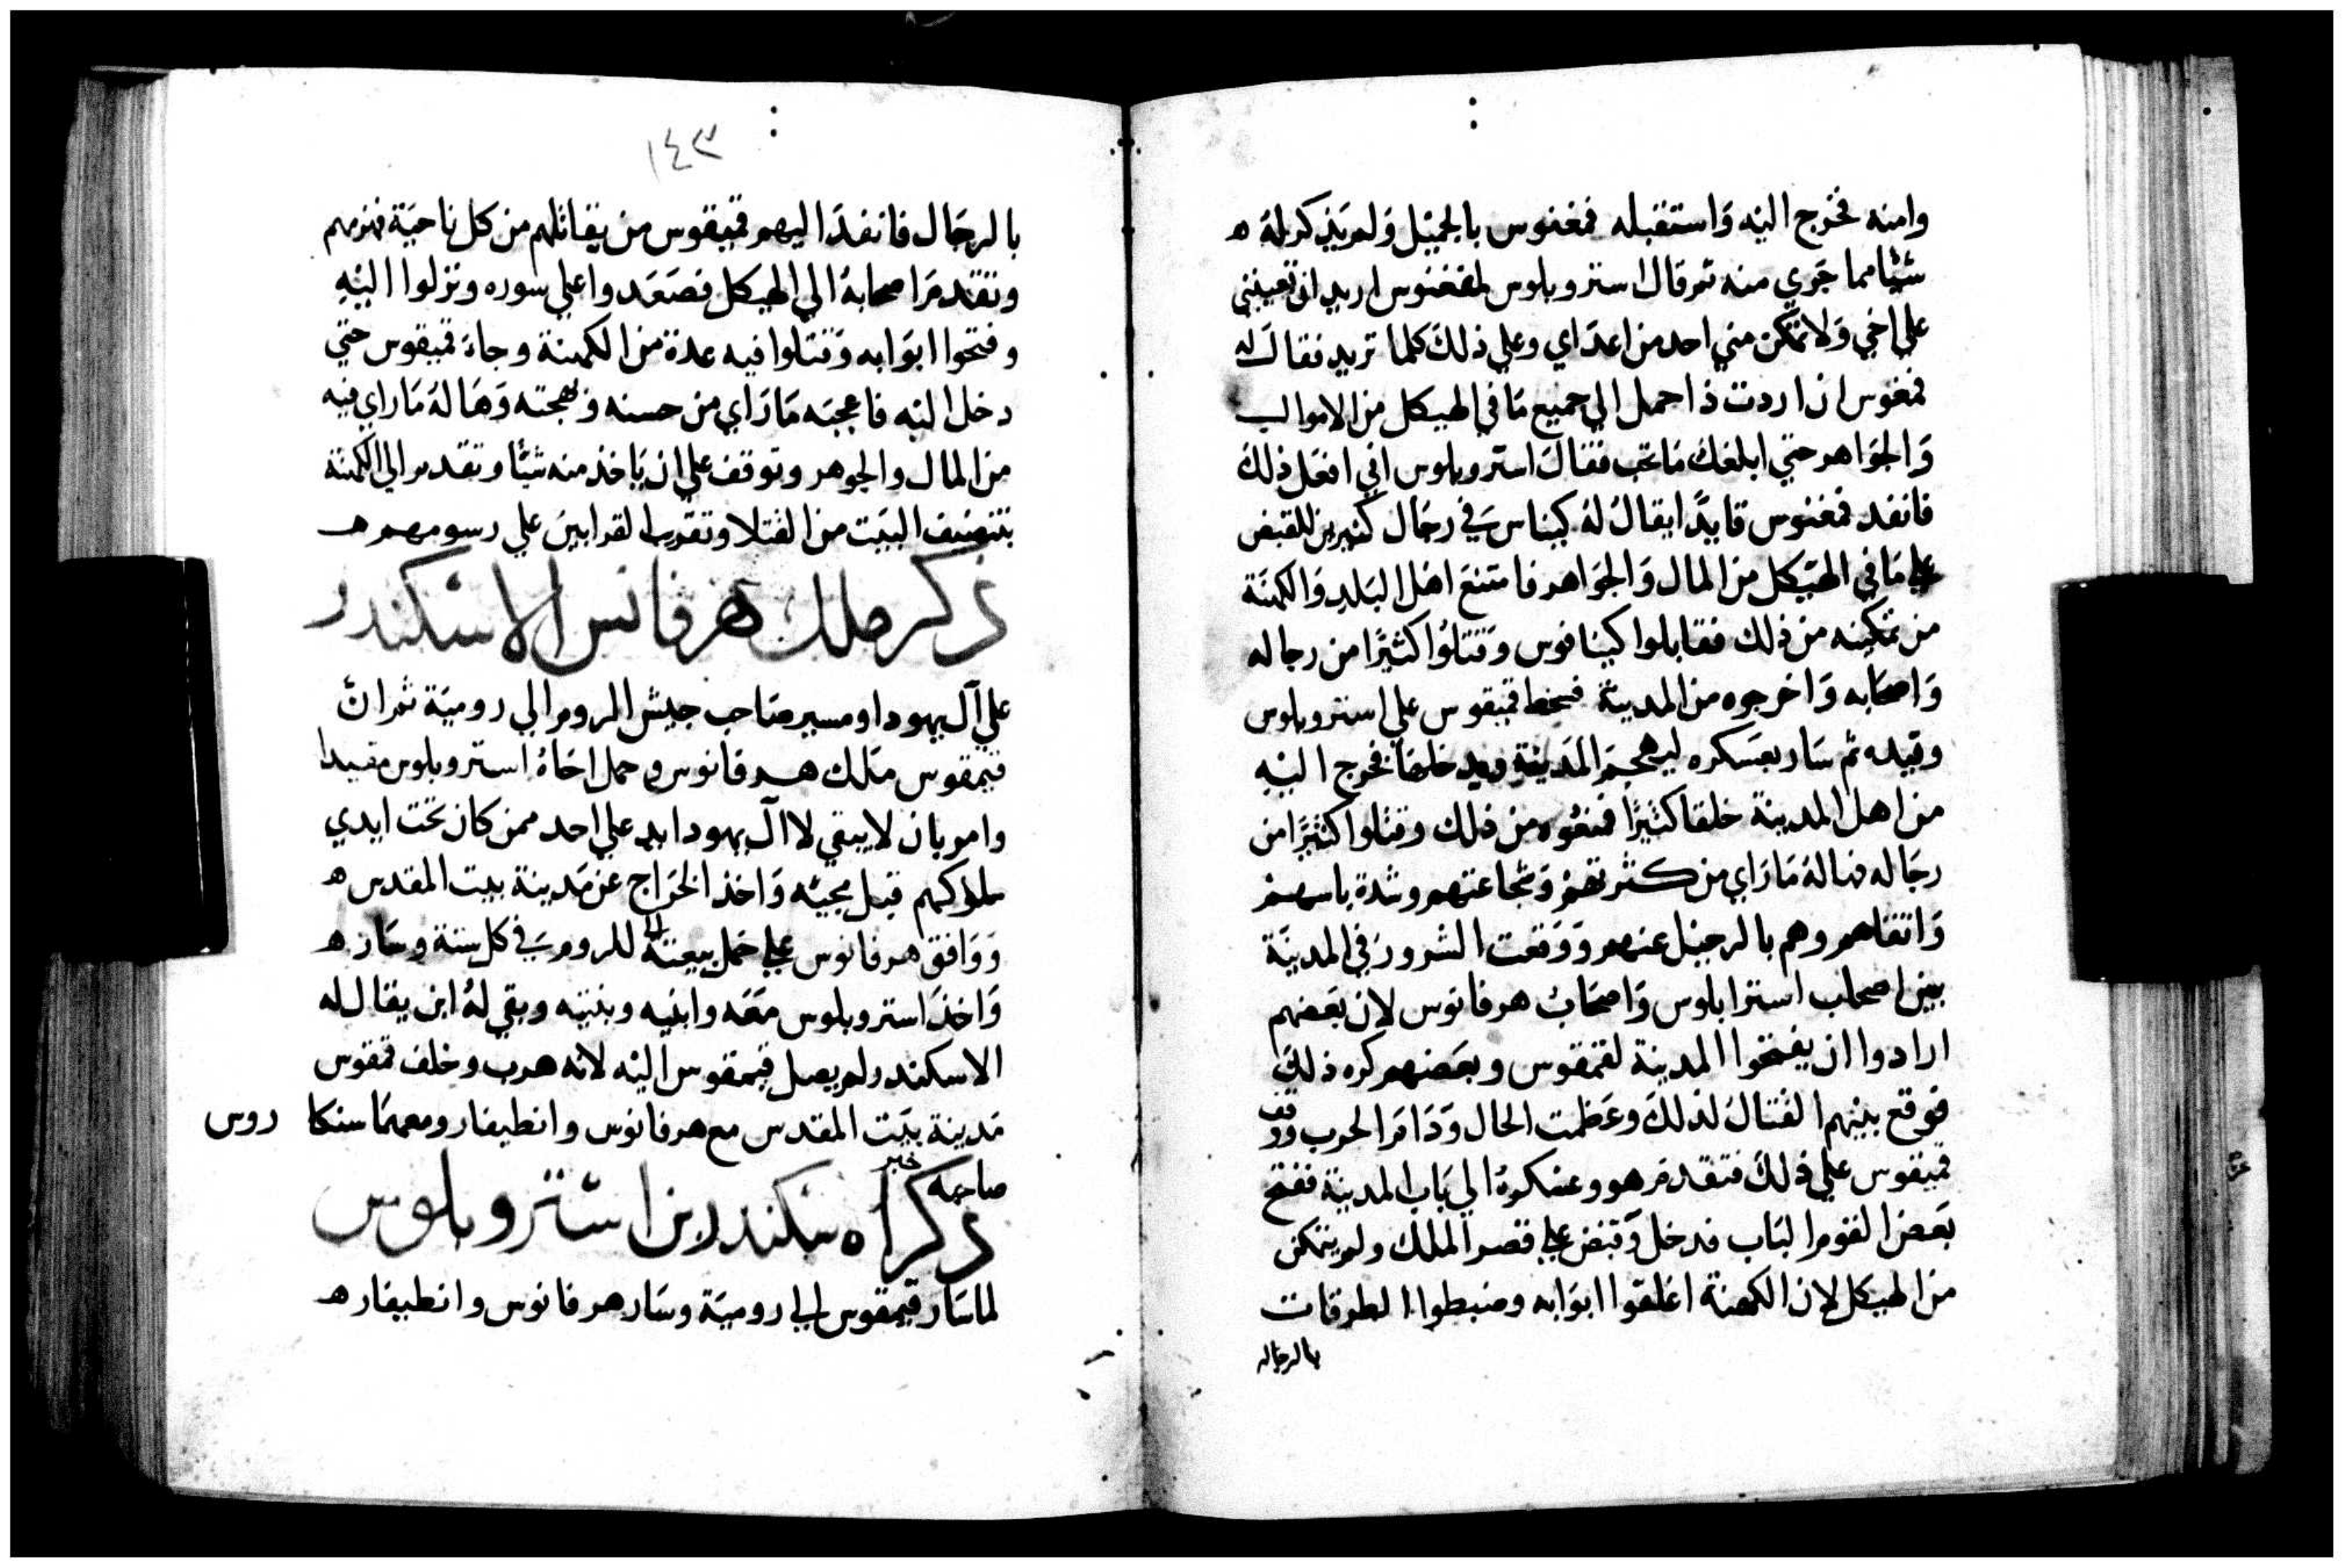 وامنه فخرج اليه واستقبله فمغنوس بالجميل ولم يذكر له ه
شيا مما جري منه ثم قال استروبلوس لفغنوس اريد ان تعينني
علي اخي ولا تمكن مني احد من اعداي وعلي ذلك كلما تريد فقال له
فمغوس ان اردت ذا احمل الي جميع ما في الهيكل من الاموال
والجواهر حتي ابلغك ما تحب فقال استروبلوس اني افعل ذلك
فانفد فمغنوس قايدا يقال له كيناس في رجال كثيرين للقبض
علي ما في الهيكل من المال والجواهر فامتنع اهل البلد والكهنة
من تمكينه من ذلك فقابلوا كينانوس وقتلوا كثيرا من رجاله
واصحابه واخرجوه من المدينة فسخط قميقوس علي استروبلوس
وقيده ثم سار بعسكره ليهجم المدينة ويدخلها فخرج اليه
من اهل المدينة خلقا كثيرا فمنعوه من ذلك وقتلوا كثيرا من
رجاله فهاله ما راي من كثرتهم وشجاعتهم وشدة باسهم
واتقاهم وهم بالرحيل عنهم ووقعت الشرور في المدينة
بين اصحاب استرابلوس واصحاب هرفانوس لان بعضهم
ارادوا ان يفتحوا المدينة لقمقوس وبعضهم كره ذلك
فوقع بينهم القتال لذلك وعظمت الحال ودام الحرب ووقف
قميقوس علي ذلك فتقدم هو وعسكره الي باب المدينة ففتح
بعض القوم الباب فدخل وقبض علي قصر الملك ولم يتمكن
من الهيكل لان الكهنة اغلقوا ابوابه وضبطوا الطرقات
بالرجاله
١٤٣
بالرجال فانفد اليهم قميقوس من يقاتلهم من كل ناحية فهزمهم
وتقدم اصحابه الي الهيكل فصعدوا علي سوره ونزلوا اليه
وفتحوا ابوابه وقتلوا فيه عدة من الكهنة وجاء قميقوس حتي
دخل اليه فاعجبه ما راي من حسنه وبهجته وهاله ما راي فيه
من المال والجوهر وتوقف علي ان ياخذ منه شيا وتقدم الي الكهنة
بتنضيف البيت من القتلا وتقريب القرابين علي رسومهم هـ
ذكر ملك هرفانس الاسكندر
علي آل يهودا ومسير صاحب جيش الروم الي رومية ثم ان
قيمقوس ملك هرفانوس وحمل اخاه استروبلوس مقيدا
وامر بان لا يبقي لاآل يهودا يد علي احد ممن كان تحت ايدي
ملوكهم قبل مجيئه واخذ الخراج عن مدينة بيت المقدس ه
ووافق هرفانوس علي حمل بيعته للروم في كل سنة وسار ه
واخذ استروبلوس معه وابنيه وبنتيه وبقي له ابن يقال له
الاسكندر ولم يصل قيمقوس اليه لانه هرب وخلف قمقوس
مدينة بيت المقدس مع هرفانوس وانطيفار ومعهما سنكا روس
صاحبه
ذكر خبر اسكندر بن استروبلوس
لما سار قيمقوس الي رومية وسار هرفانوس وانطيفار هـ